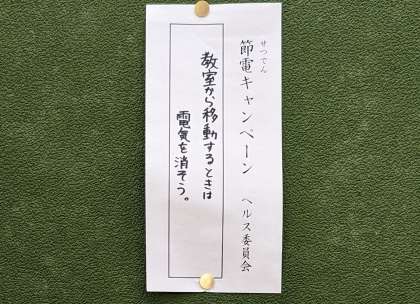 せつでん
節電キャンペーン ヘルス委員会
教室から移動するときは
電気を消そう。